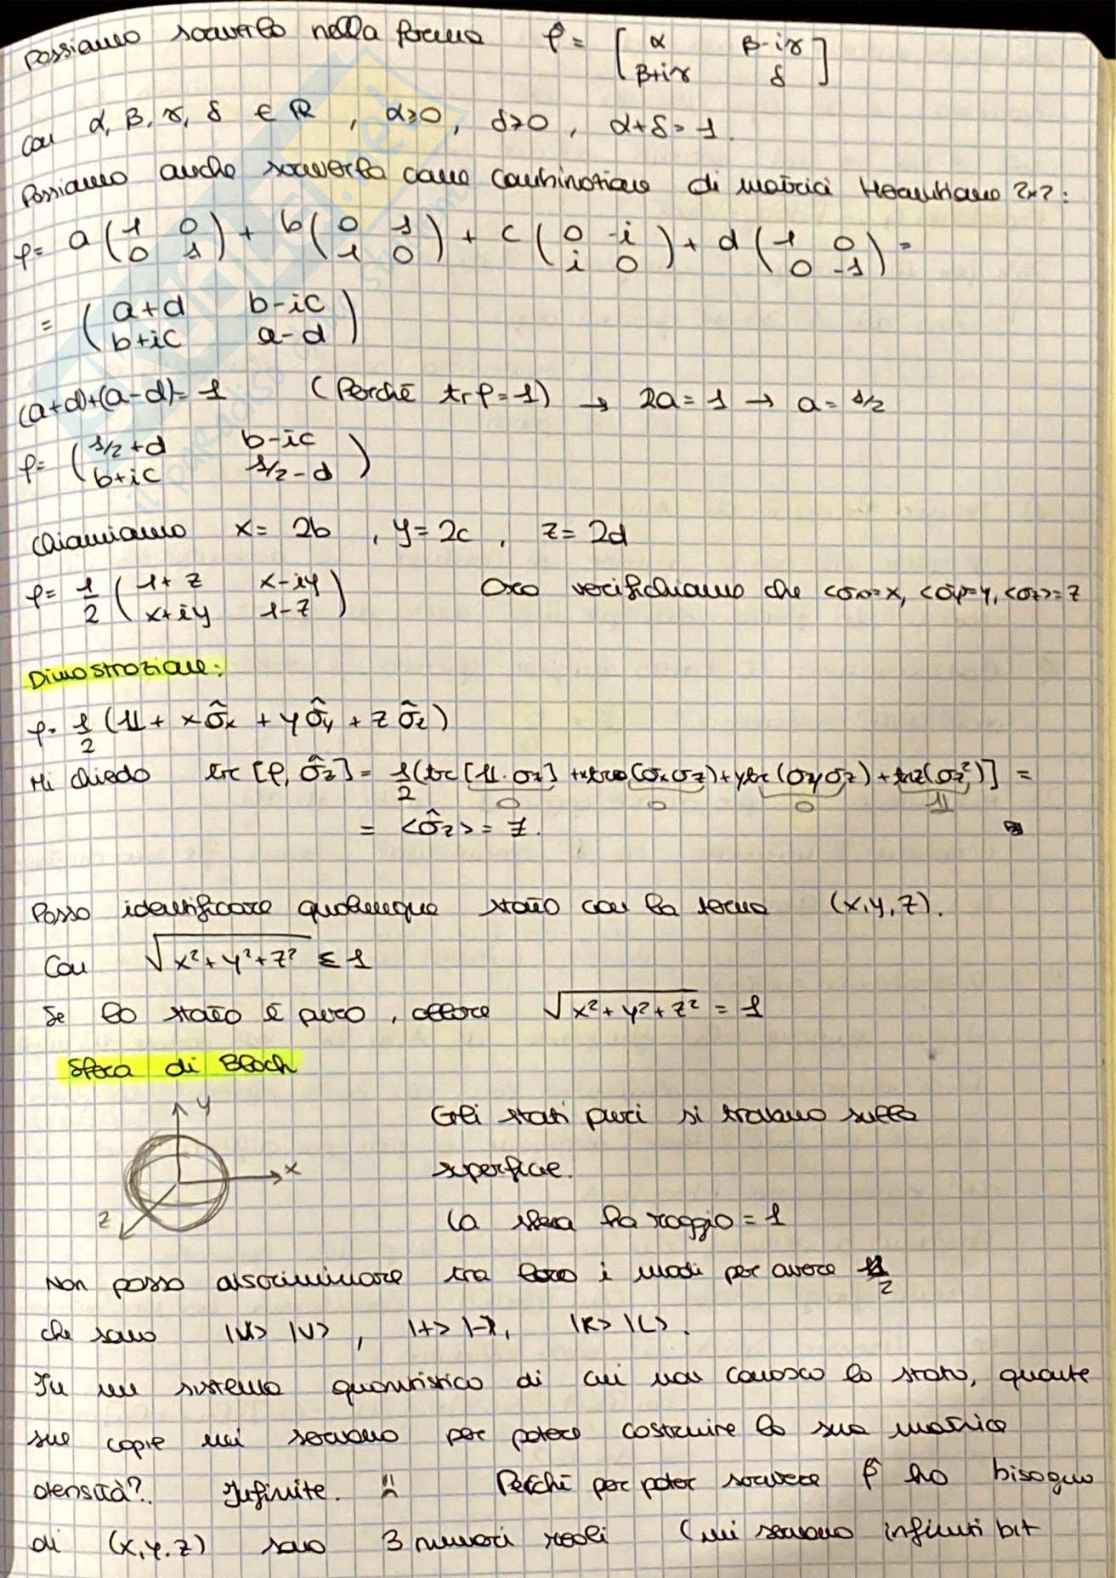 Possiamo scriverlo nella forma ρ̂ = [ α β-iγ
β+iγ δ ]
con α, β, γ, δ ∈ ℝ , α≥0, δ≥0, α+δ=1.
Possiamo anche scriverla come combinazione di matrici Hermitiane 2x2:
ρ= a(1 0 0 1) + b(0 1 1 0) + c(0 -i i 0) + d(1 0 0 -1) =
= (a+d b-ic b+ic a-d)
(a+d)+(a-d)=1 (Perché trρ=1) → 2a=1 → a=1/2
ρ= (1/2+d b-ic b+ic 1/2-d)
Chiamiamo x= 2b , y=2c , z=2d
ρ= 1/2 (1+z x-iy x+iy 1-z) Ora verifichiamo che <σx>=x, <σy>=y, <σz>=z
Dimostrazione:
ρ= 1/2 (𝟙 + xσ̂x + yσ̂y + zσ̂z)
Mi chiedo tr[ρ, σ̂z] = 1/2 (tr[𝟙·σz] + xtr(σxσz) + ytr(σyσz) + trz(σz²)] =
0 0 0 𝟙
= <σ̂z> = z.
Posso identificare qualunque stato con la terna (x,y,z).
Con √x²+y²+z² ≤ 1
Se lo stato è puro, allora √x²+y²+z² = 1
Sfera di Bloch
y
x
z
Gli stati puri si trovano sulla
superficie.
La sfera ha raggio = 1
Non posso discriminare tra loro i modi per avere 𝟙/2
che sono |H> |V> , |+> |->, |R> |L>.
In un sistema quantistico di cui non conosco lo stato, quante
sue copie mi servono per potere costruire la sua matrice
densità? Infinite. Perché per poter scrivere ρ̂ ho bisogno
di (x,y,z) sono 3 numeri reali (mi servono infiniti bit